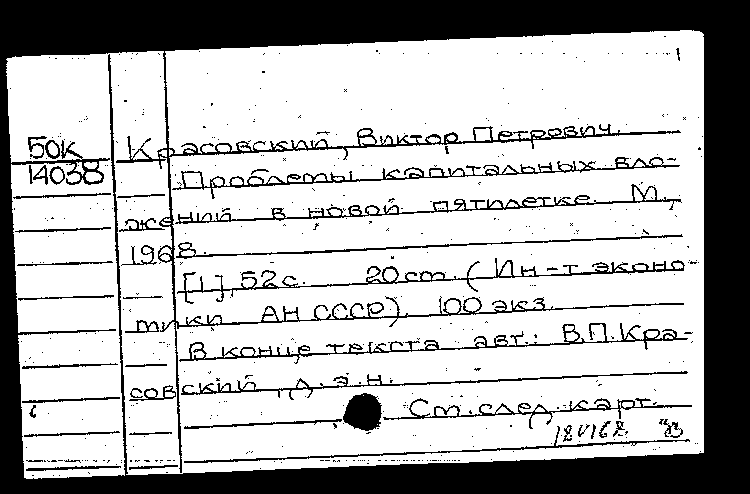 1
50К Красовский, Виктор Петрович.
14038 Проблемы капитальных вло-
жений в новой пятилетке. М.,
1968.
[1], 52 с. 20 см. (Ин-т эконо-
мики АН СССР). 100 экз.
В конце текста авт.: В.П.Кра-
совский, д.э.н.
См. след. карт.